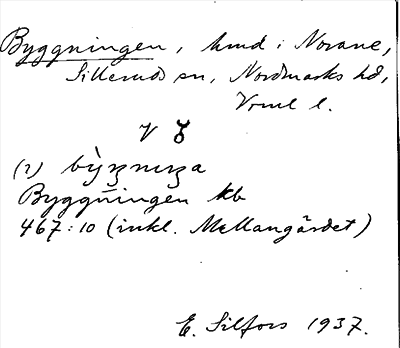 Byggningen, hmd i Norane,
Sillerud sn, Nordmarks hd,
Vrml l.
V
(2) bỳꞡnuꞡa
Byggningen kb
467:10 (inkl. Mellangärdet)
E. Silfors 1937.